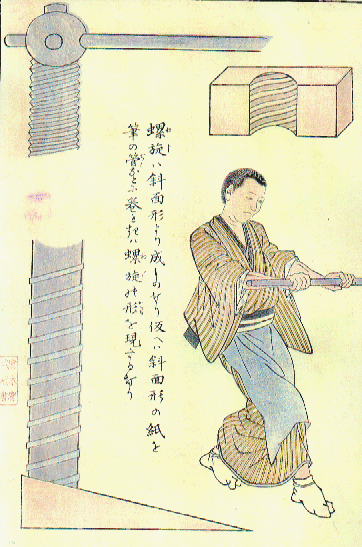 螺旋ハ斜面形より成ものなり仮へハ斜面形の紙を
筆の管などに巻き 螺旋の形を現するなり